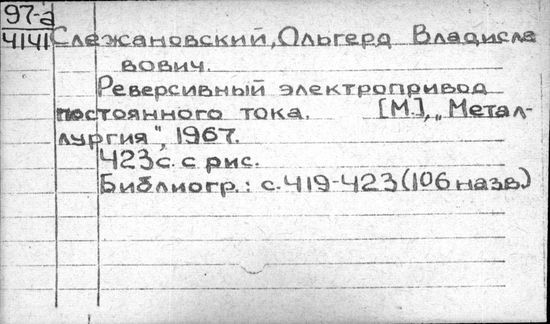 97-а
4141 Слежановский, Ольгерд Владисла
вович.
Реверсивный электропривод
постоянного тока. [М.], „Метал-
лургия", 1967.
423с. с рис.
Библиогр.: с.419-423 (106 назв.)